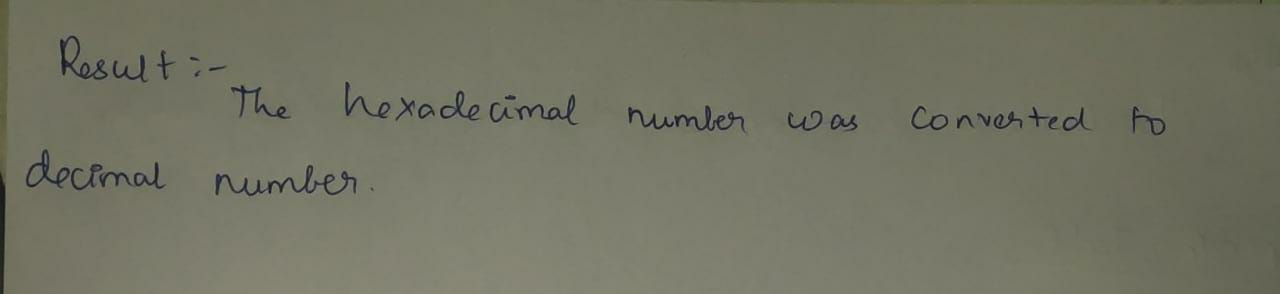 Result :-
The hexadecimal number was converted to
decimal number.